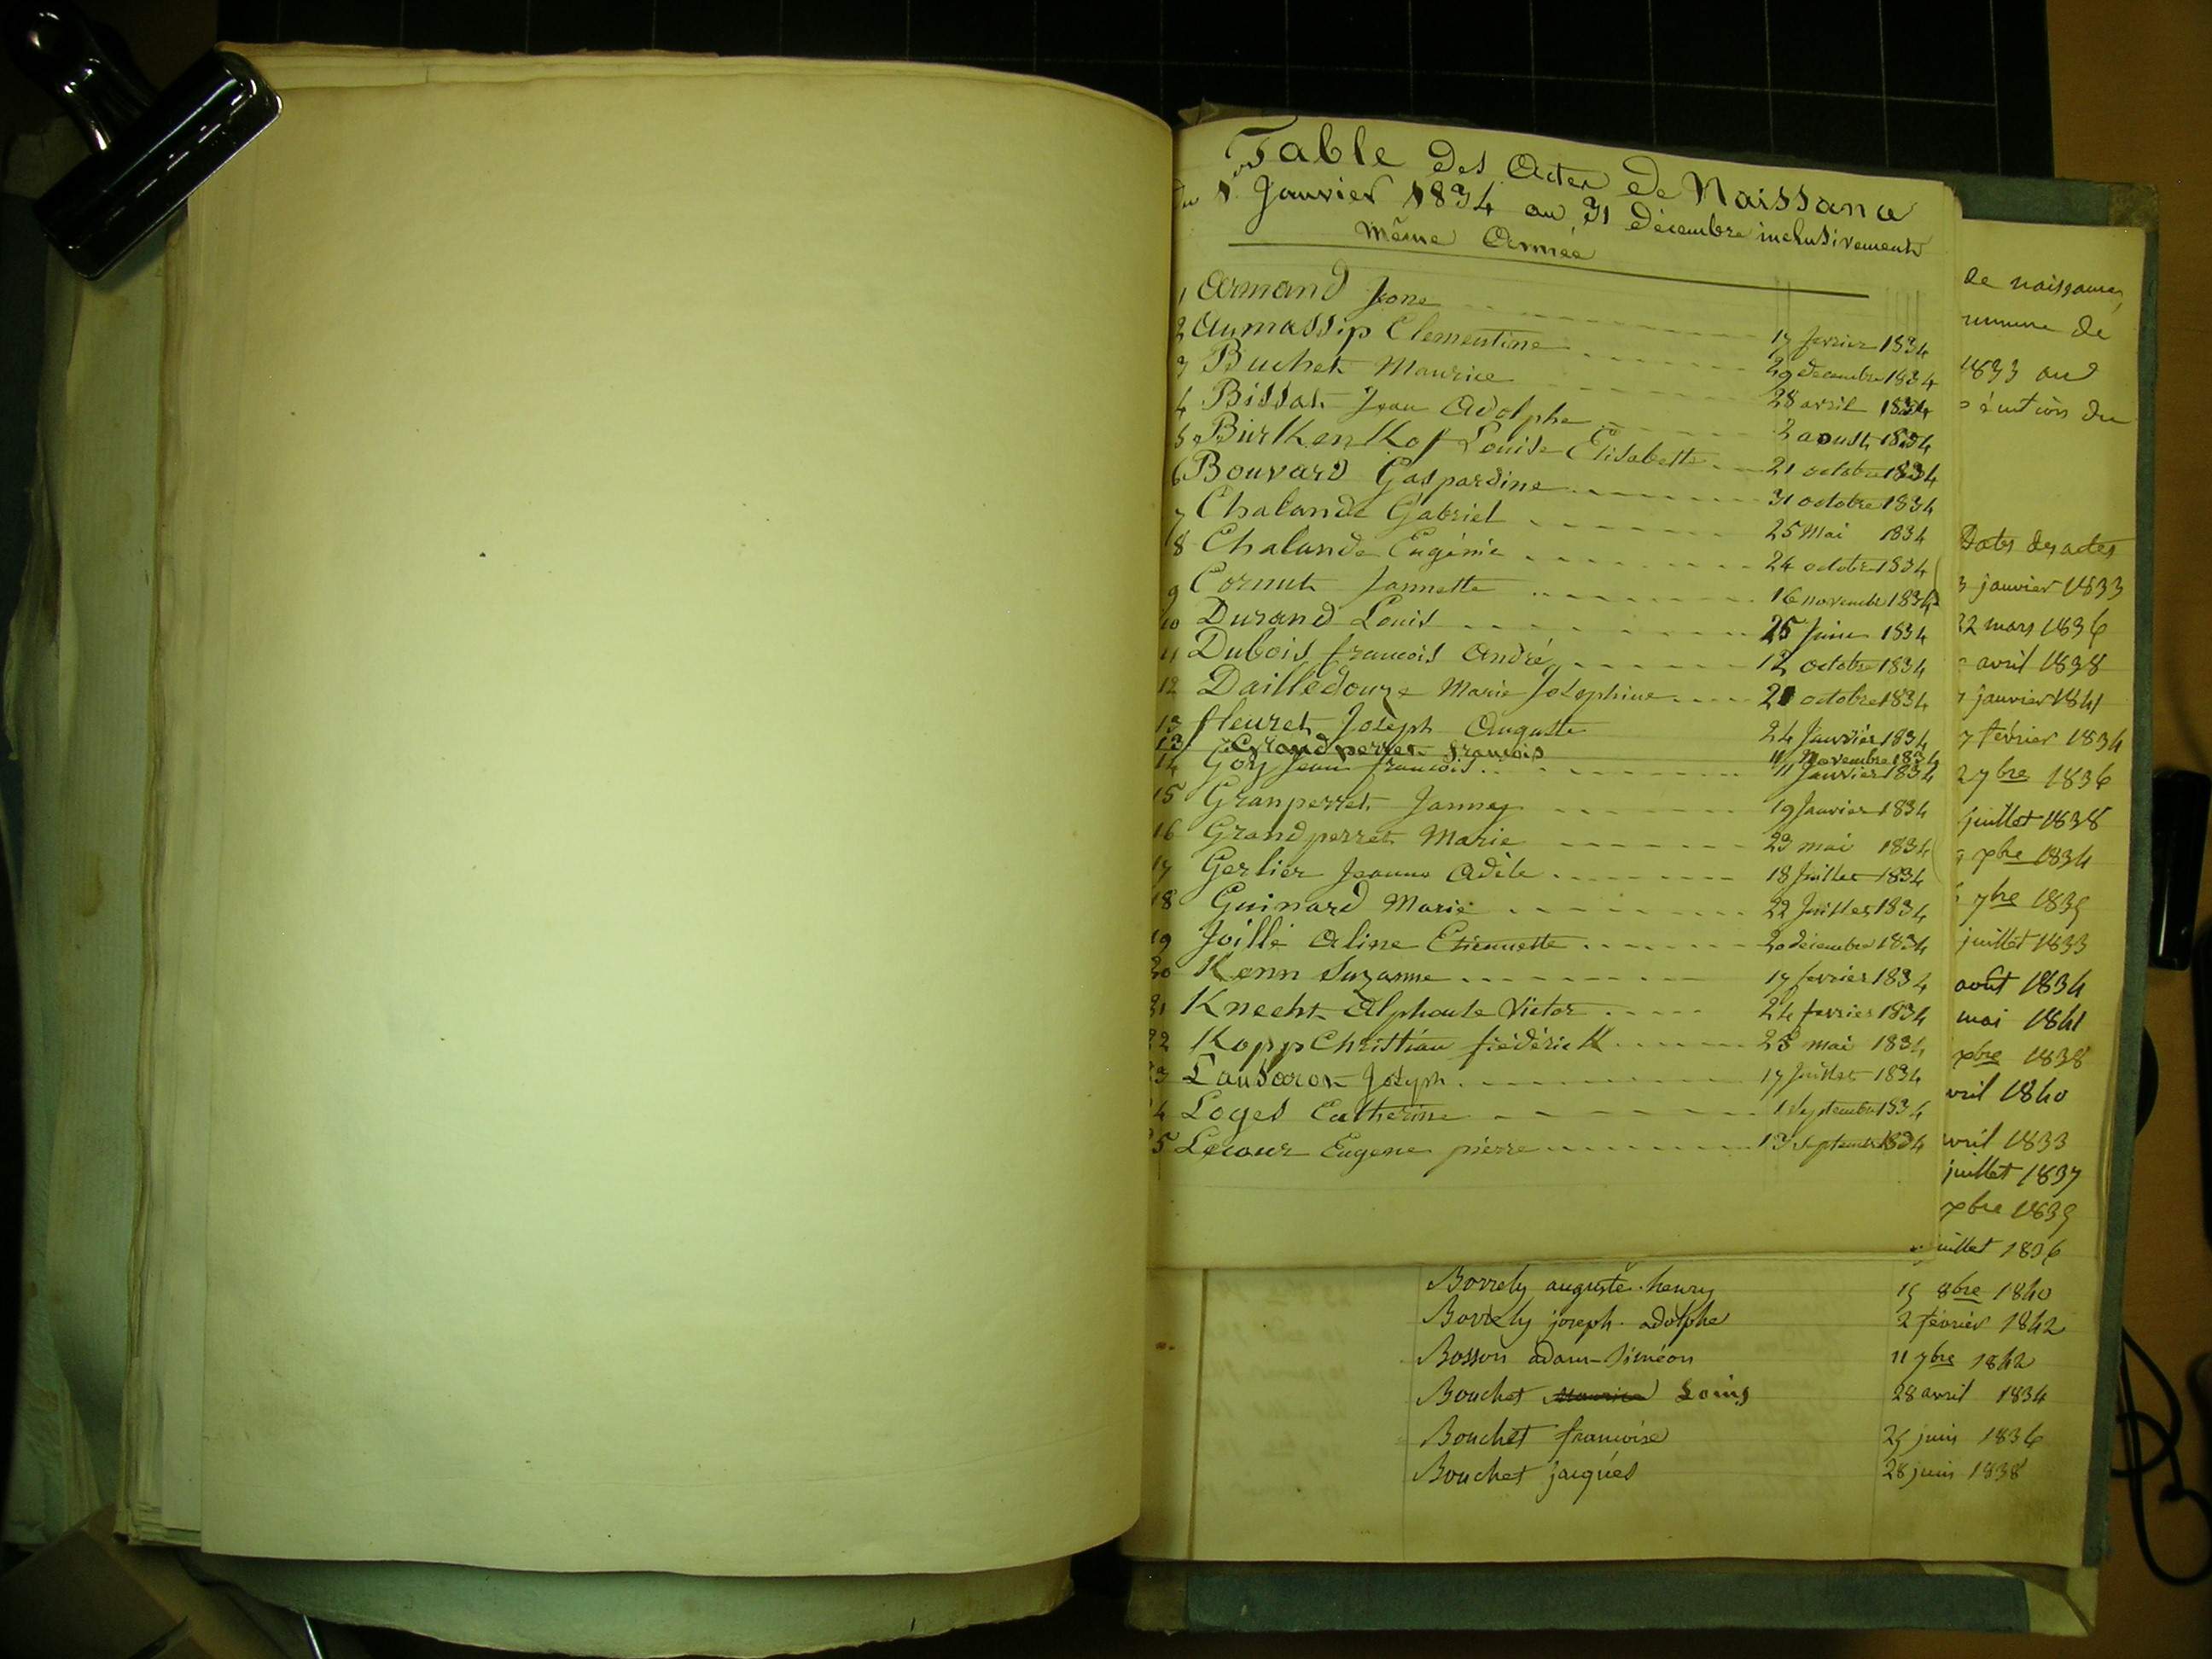 Table des Actes de Naissance
du 1er Janvier 1834 au 31 décembre inclusivement
même Année
1 Armand Jeone 17 fevrier 1834
2 Aumassip Clementine 29 decembre 1834
3 Buchet Maurice 28 avril 1834
4 Bissat Jean Adolphe 2 aoust 1834
5 Burkenkof Louise Elisabette 21 octobre 1834
6 Bouvard Gaspardine 31 octobre 1834
7 Chalande Gabriel 25 Mai 1834
8 Chalande Eugénie 24 octobre 1834
9 Cornut Jannette 16 novembre 1834
10 Durand Louis 25 Juin 1834
11 Dubois francois André 12 octobre 1834
12 Dailledouze Marie Josephine 21 octobre 1834
13 fleuret Joseph Auguste 24 Janvier 1834
13 Grandperret francois 11 Novembre 1834
14 Goy Jean francois 11 Janvier 1834
15 Granperret Janney 19 Janvier 1834
16 Grandperret Marie 23 mai 1834
17 Gerlier Jeanne Adèle 18 Juillet 1834
18 Guinard Marie 22 Juillet 1834
19 Joillé Aline Etiennette 20 décembre 1834
20 Kenn Suzanne 17 fevrier 1834
21 Knecht Alphonse Victor 24 fevrier 1834
22 Kopp Christian frédérick 25 mai 1834
23 Joseph 17 Juillet 1834
24 Loges Catherine 1 Septembre 1834
25 Lecour Eugene pierre 13 septembre 1834
de naissance,
mmune de
1833 au
du
Dates des actes
3 janvier 1833
22 mars 1836
avril 1838
7 janvier 1841
7 février 1834
2 7bre 1836
juillet 1838
xbre 1834
7bre 1839
juillet 1833
août 1834
mai 1841
xbre 1838
vril 1840
vril 1833
juillet 1837
xbre 1839
uillet 1836
Borrely auguste henry 15 8bre 1840
Borrely joseph adolphe 2 février 1842
Bosson adam-Siméon 11 7bre 1842
Bouchet Maurice Louis 28 avril 1834
Bouchet francoise 25 juin 1836
Bouchet jacques 28 juin 1838